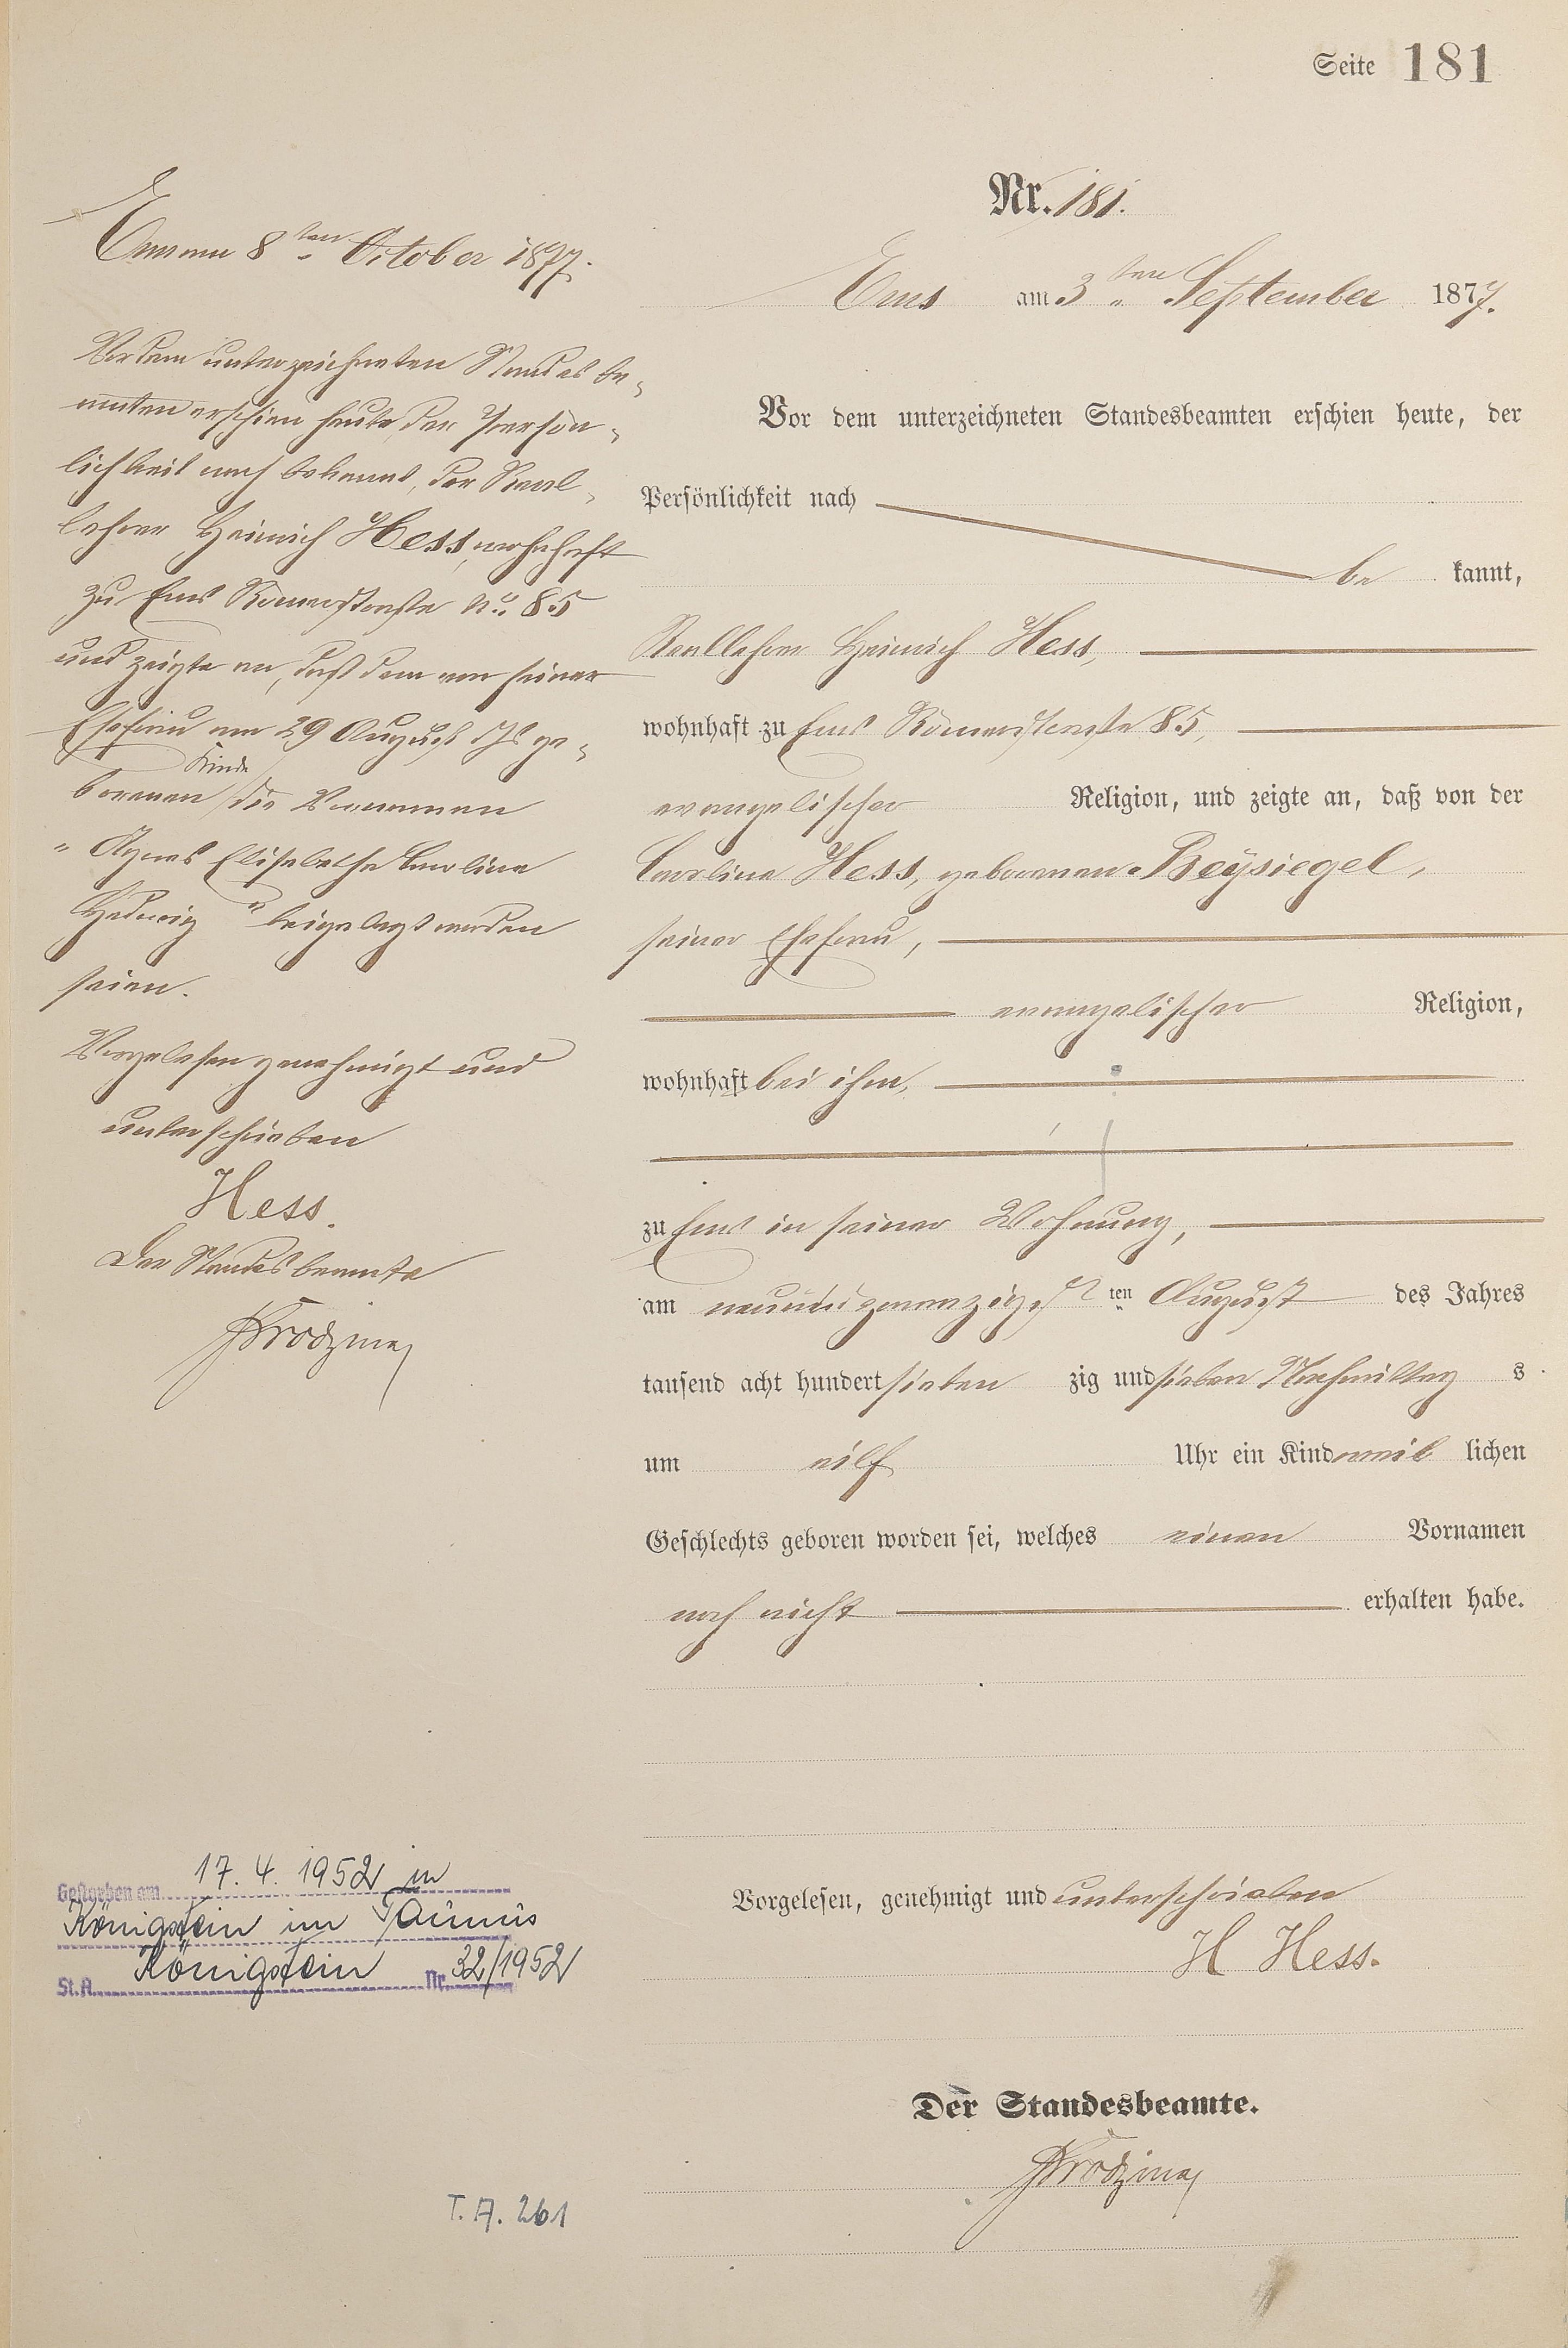 Seite 181
Nr. 181.
Ems am 3ten September 1877.
Vor dem unterzeichneten Standesbeamten erschien heute, der
Persönlichkeit nach
be kannt,
Reallehrer Heinrich Hess,
wohnhaft zu Ems Römerstraße 85,
evangelischer Religion, und zeigte an, daß von der
Caroline Hess, geborenen Beÿsiegel,
seiner Ehefrau,
evangelischer Religion,
wohnhaft bei ihm,
zu Ems in seiner Wohnung,
am neunundzwanzigst ten August des Jahres
tausend acht hundert sieben zig und sieben Nachmittag s
um eilf Uhr ein Kind weib lichen
Geschlechts geboren worden sei, welches einen Vornamen
noch nicht erhalten habe.
Vorgelesen, genehmigt und unterschrieben
H Hess.
Der Standesbeamte.
Ems am 8ten October 1877.
Vor dem unterzeichneten Standesbe-
amten erschien heute, der Persön-
lichkeit nach bekannt, der Real-
lehrer Heinrich Hess, wohnhaft
zu Ems Römerstraße No. 85
und zeigte an, daß dem von seiner
Ehefrau am 29 August d Js ge-
borenen Kinde die Vornamen
"Agnes Elisabethe Caroline
Hedwig" beigelegt worden
seien.
Vorgelesen genehmigt und
unterschrieben
Hess.
Der Standesbeamte
Gestorben am 17. 4. 1952 in
Königstein im Taunus
St.A. Königstein Nr. 32/1952
T. A. 261